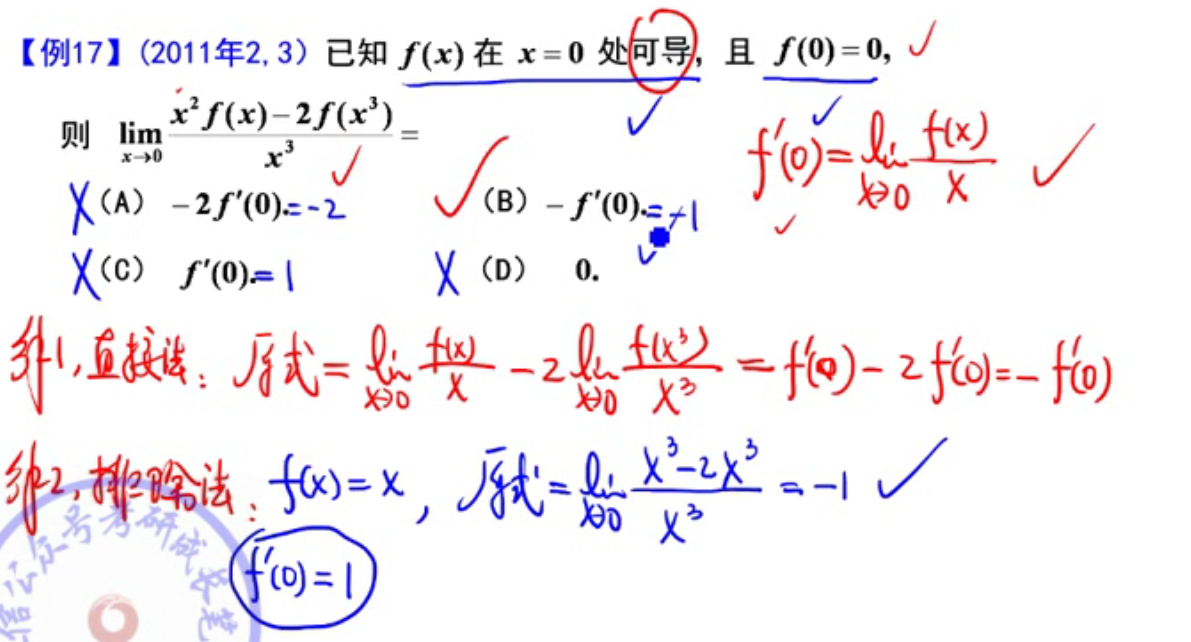 【例17】(2011年2,3) 已知 f(x) 在 x=0 处可导, 且 f(0)=0, ✓
则 lim_{x→0} (x²f(x)−2f(x³))/x³ =
f′(0)=lim_{x→0} f(x)/x ✓
X (A) −2f′(0).=−2 ✓ (B) −f′(0).=−1
X (C) f′(0).=1 X (D) 0.
解1,直接法: 原式=lim_{x→0} f(x)/x −2lim_{x→0} f(x³)/x³ =f′(0)−2f′(0)=−f′(0)
解2,排除法: f(x)=x, 原式=lim_{x→0} (x³−2x³)/x³ =−1 ✓
f′(0)=1
众号考研成长笔